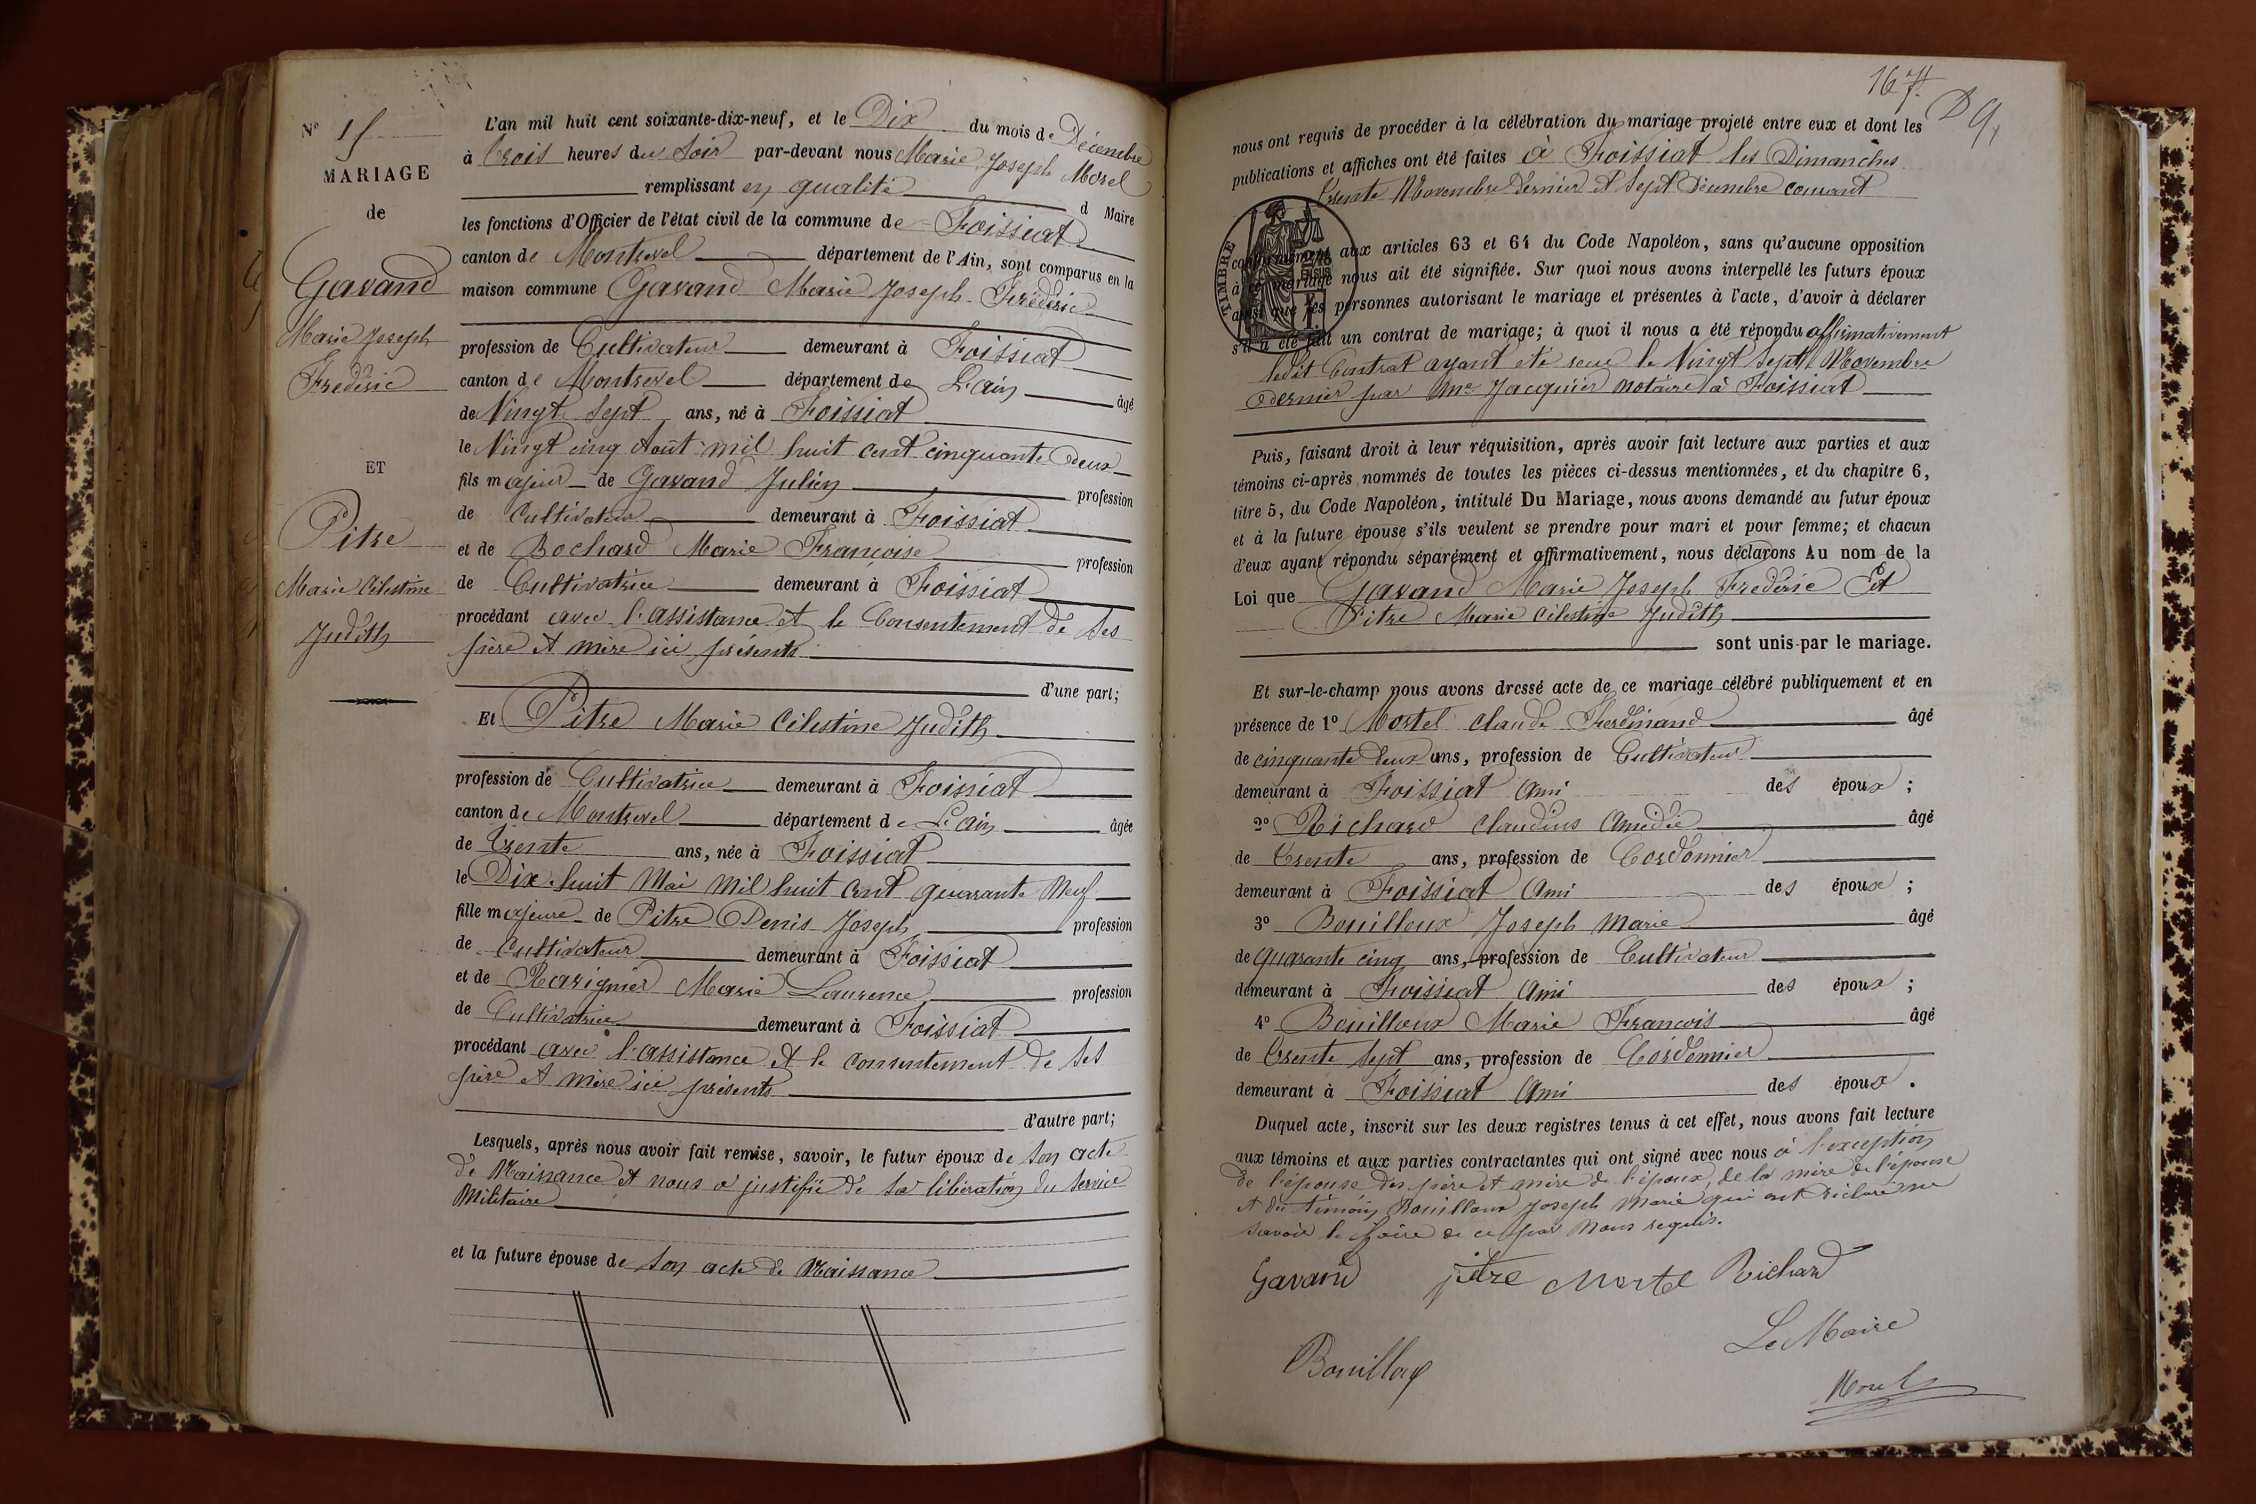 N° 15
MARIAGE
de
Gavand
Marie Joseph
Frédéric
ET
Pitre
Marie Célestine
Judith
L'an mil huit cent soixante-dix-neuf, et le Dix du mois de Décembre
à trois heures du Soir par-devant nous Marie Joseph Morel
remplissant en qualité d Maire
les fonctions d'Officier de l'état civil de la commune de Foissiat
canton de Montrevel département de l'Ain, sont comparus en la
maison commune Gavand Marie Joseph Frédéric
profession de Cultivateur demeurant à Foissiat
canton de Montrevel département de L'ain âgé
de Vingt Sept ans, né à Foissiat
le Vingt cinq Août mil huit cent cinquante Deux
fils majeur de Gavand Julien profession
de Cultivateur demeurant à Foissiat
et de Bochard Marie Françoise profession
de Cultivatrice demeurant à Foissiat
procédant avec l'assistance et le Consentement de ses
père et mère ici présents
d'une part;
Et Pitre Marie Célestine Judith
profession de Cultivatrice demeurant à Foissiat
canton de Montrevel département de L'ain âgée
de trente ans, née à Foissiat
le Dix-huit Mai Mil huit cent quarante Neuf
fille majeure de Pitre Denis Joseph profession
de Cultivateur demeurant à Foissiat
et de Ravignier Marie Laurence profession
de Cultivatrice demeurant à Foissiat
procédant avec l'assistance et le consentement de ses
père et mère ici présents
d'autre part;
Lesquels, après nous avoir fait remise, savoir, le futur époux de son acte
de Naissance et nous a justifié de sa libération du service
Militaire
et la future épouse de son acte de Naissance
167
nous ont requis de procéder à la célébration du mariage projeté entre eux et dont les
publications et affiches ont été faites à Foissiat les Dimanches
trente Novembre dernier et sept Décembre courant
TIMBRE
conformément aux articles 63 et 64 du Code Napoléon, sans qu'aucune opposition
à ce mariage nous ait été signifiée. Sur quoi nous avons interpellé les futurs époux
ainsi que les personnes autorisant le mariage et présentes à l'acte, d'avoir à déclarer
s'il a été fait un contrat de mariage; à quoi il nous a été répondu affirmativement
ledit Contrat ayant été reçu le Vingt Sept Novembre
dernier par Me Jacquier notaire à Foissiat
Puis, faisant droit à leur réquisition, après avoir fait lecture aux parties et aux
témoins ci-après nommés de toutes les pièces ci-dessus mentionnées, et du chapitre 6,
titre 5, du Code Napoléon, intitulé Du Mariage, nous avons demandé au futur époux
et à la future épouse s'ils veulent se prendre pour mari et pour femme; et chacun
d'eux ayant répondu séparément et affirmativement, nous déclarons Au nom de la
Loi que Gavand Marie Joseph Frédéric Et
Pitre Marie Célestine Judith
sont unis par le mariage.
Et sur-le-champ nous avons dressé acte de ce mariage célébré publiquement et en
présence de 1° Mortel Claude Ferdinand âgé
de cinquante deux ans, profession de Cultivateur
demeurant à Foissiat Ami des époux ;
2° Richard Claudius Amédée âgé
de trente ans, profession de Cordonnier
demeurant à Foissiat Ami des époux ;
3° Bouilloux Joseph Marie âgé
de quarante cinq ans, profession de Cultivateur
demeurant à Foissiat Ami des époux ;
4° Bouilloux Marie François âgé
de trente sept ans, profession de Cordonnier
demeurant à Foissiat Ami des époux .
Duquel acte, inscrit sur les deux registres tenus à cet effet, nous avons fait lecture
aux témoins et aux parties contractantes qui ont signé avec nous à l'exception
de l'épouse des père et mère de l'époux, de la mère de l'épouse
et du témoin Bouilloux Joseph Marie qui ont déclaré ne
savoir le faire de ce par Nous requis.
Gavand pitre Mortel Richard
Le Maire
Bouilloux
Morel